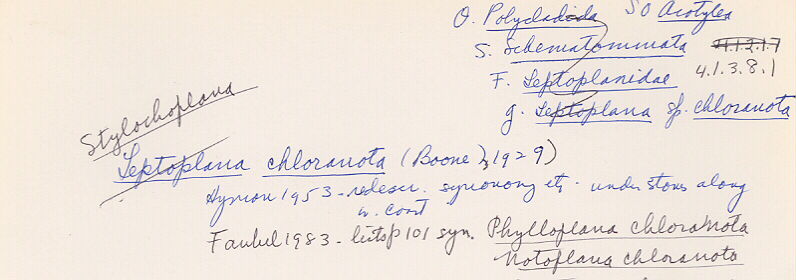 O. Polycladida SO Acotylea
S. Schematommata 4.1.2.17
F. Leptoplanidae 4.1.3.8.1
g. Leptoplana sp. chloranota
Stylochoplana
Leptoplana chloranota (Boone, 1929)
Hyman 1953 - redescr. synonomy etc. - under stones along
w. coast
Faubel 1983 - lists p 101 syn. Phylloplana chloranota
Notoplana chloranota